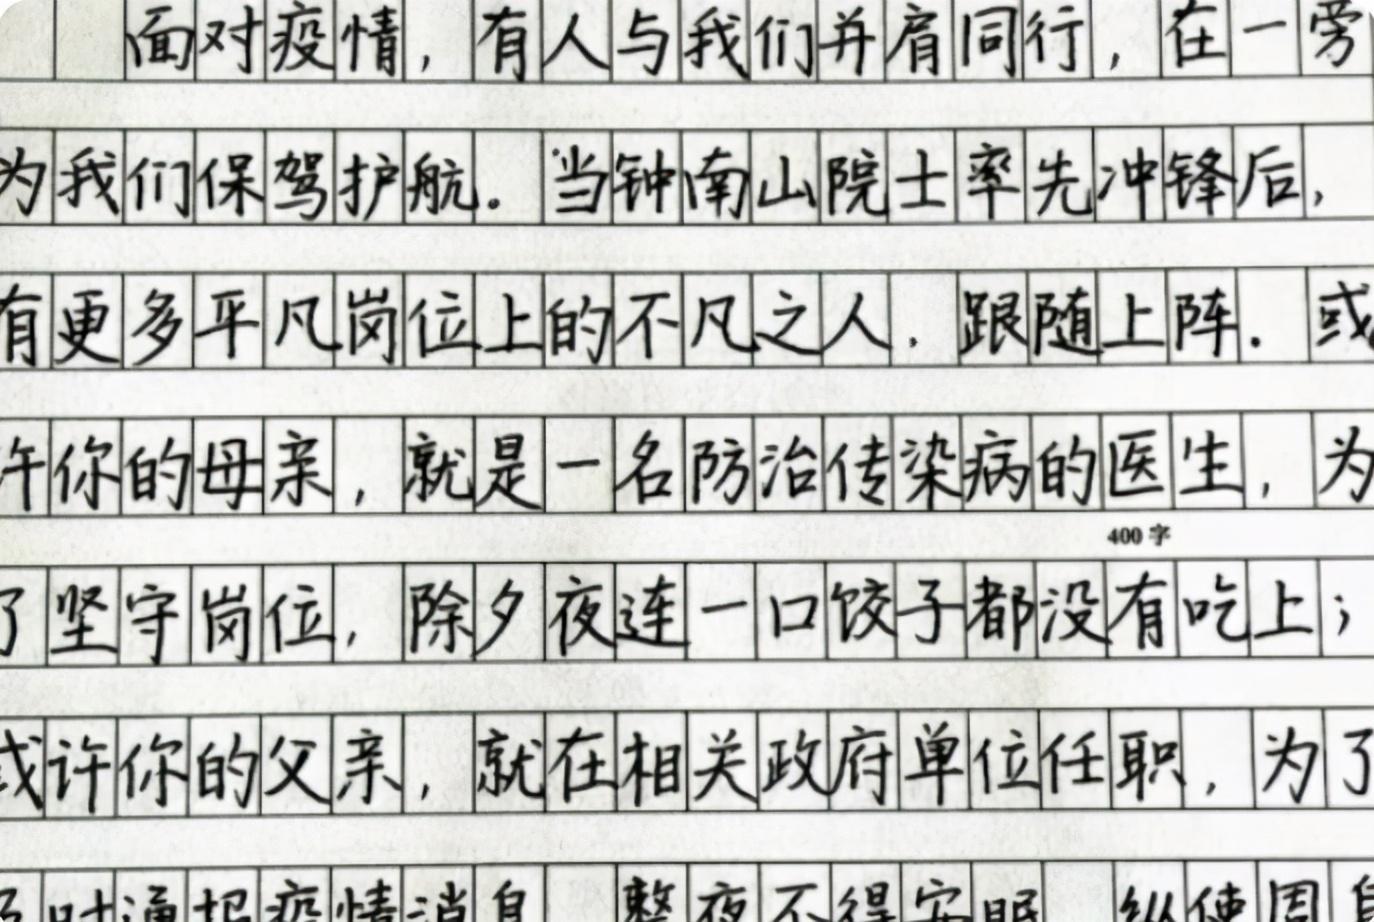 面对疫情，有人与我们并肩同行，在一旁
为我们保驾护航。当钟南山院士率先冲锋后，
有更多平凡岗位上的不凡之人，跟随上阵。或
许你的母亲，就是一名防治传染病的医生，为
400字
了坚守岗位，除夕夜连一口饺子都没有吃上；
或许你的父亲，就在相关政府单位任职，为了
时通报疫情消息，整夜不得安眠